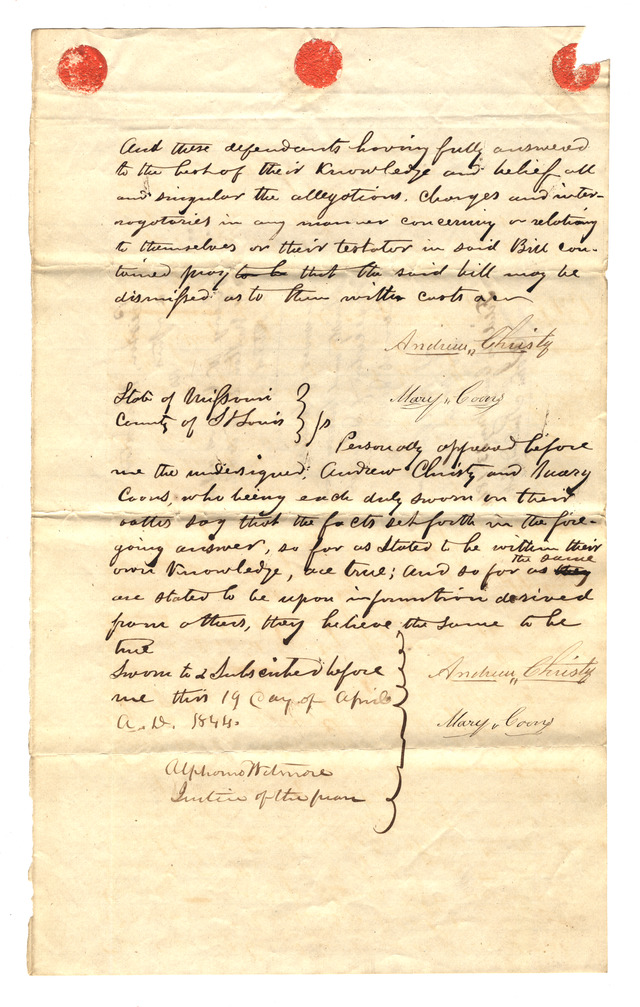 And these defendants having fully answered
to the best of their Knowledge and belief all
and singular the allegations, charges and inter-
rogatories in any manner concerning or relating
to themselves or their testator in said Bill con-
tained pray to be that the said bill may be
dismissed as to them with costs &c
Andrew Christy
Mary Coons
State of Missouri
County of St Louis } ss
Personally appeared before
me the undersigned, Andrew Christy and Mary
Coons, who being each duly sworn on their
oaths say that the facts set forth in the fore-
going answer, so far as stated to be within their
own Knowledge, are true; and so far as they the same
are stated to be upon information derived
from others, they believe the same to be
true
Sworn to & Subscribed before
me this 19 day of April
A.D. 1844.
Andrew Christy
Mary Coons
Alphonso Wetmore
Justice of the peace